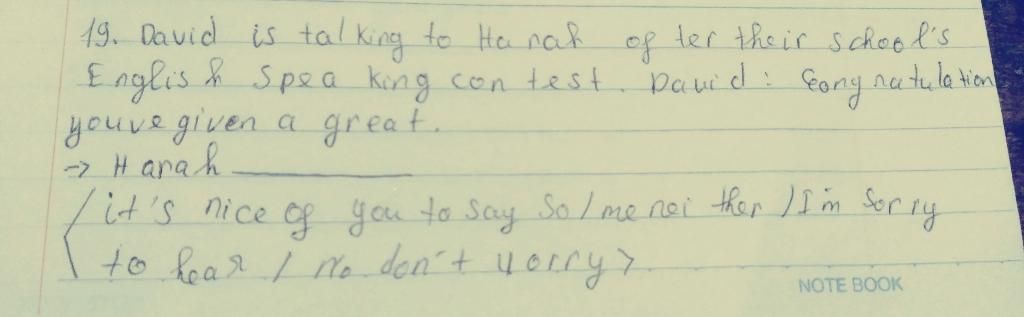 19. David is talking to Hanah of ter their school's
English Speaking contest. David: Congratulation
youve given a great.
→ Hanah ________
/ it's nice of you to say so / me nei ther / I'm Sorry
\ to hear / No don't worry >
NOTE BOOK